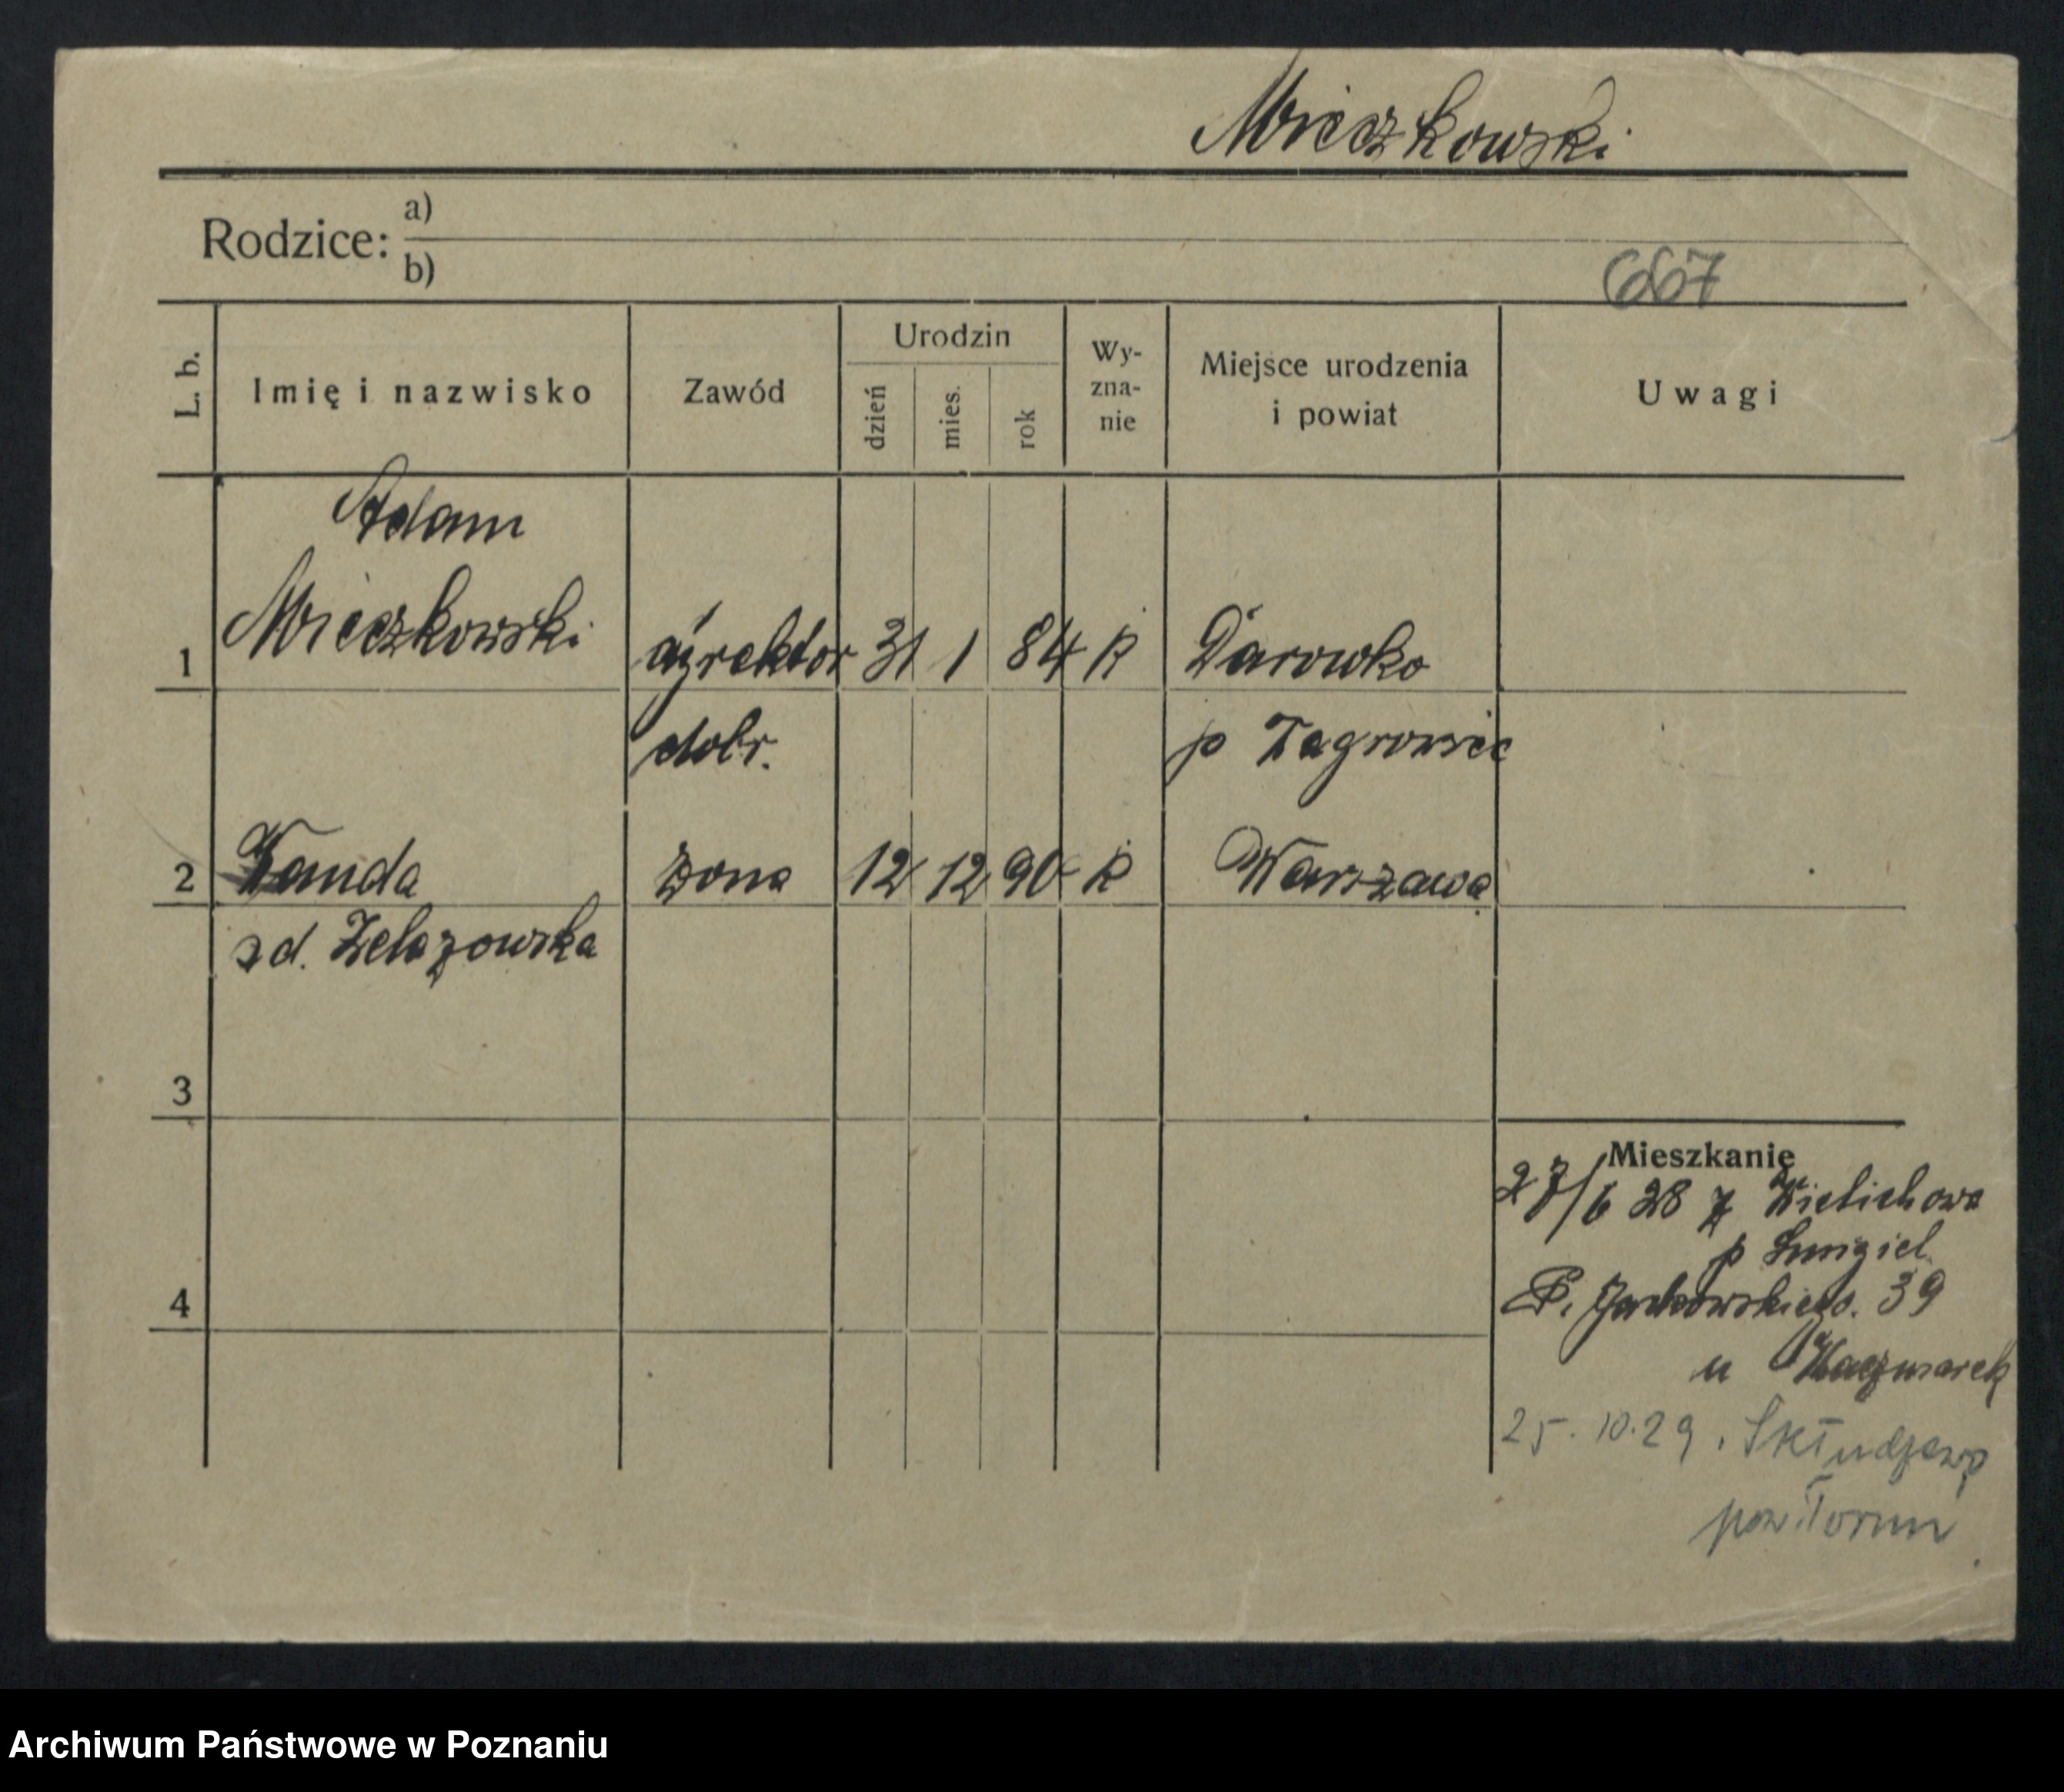 Mieczkowski
Rodzice: a)
b)
667
L. b.
Imię i nazwisko
Zawód
Urodzin
dzień
mies.
rok
Wy-
zna-
nie
Miejsce urodzenia
i powiat
Uwagi
Adam
1 Mieczkowski dyrektor 31 1 84 R Darowko
dobr. p Zagrowiec
2 Wanda żona 12 12 90 R Warszawa
zd. Żelazowska
3
4
Mieszkanie
27/6 28 z Wielichowa
p Smigiel
P. Jackowskiego. 39
u Kaczmarek
25.10.29. Skłudzewo
pow. Toruń
Archiwum Państwowe w Poznaniu